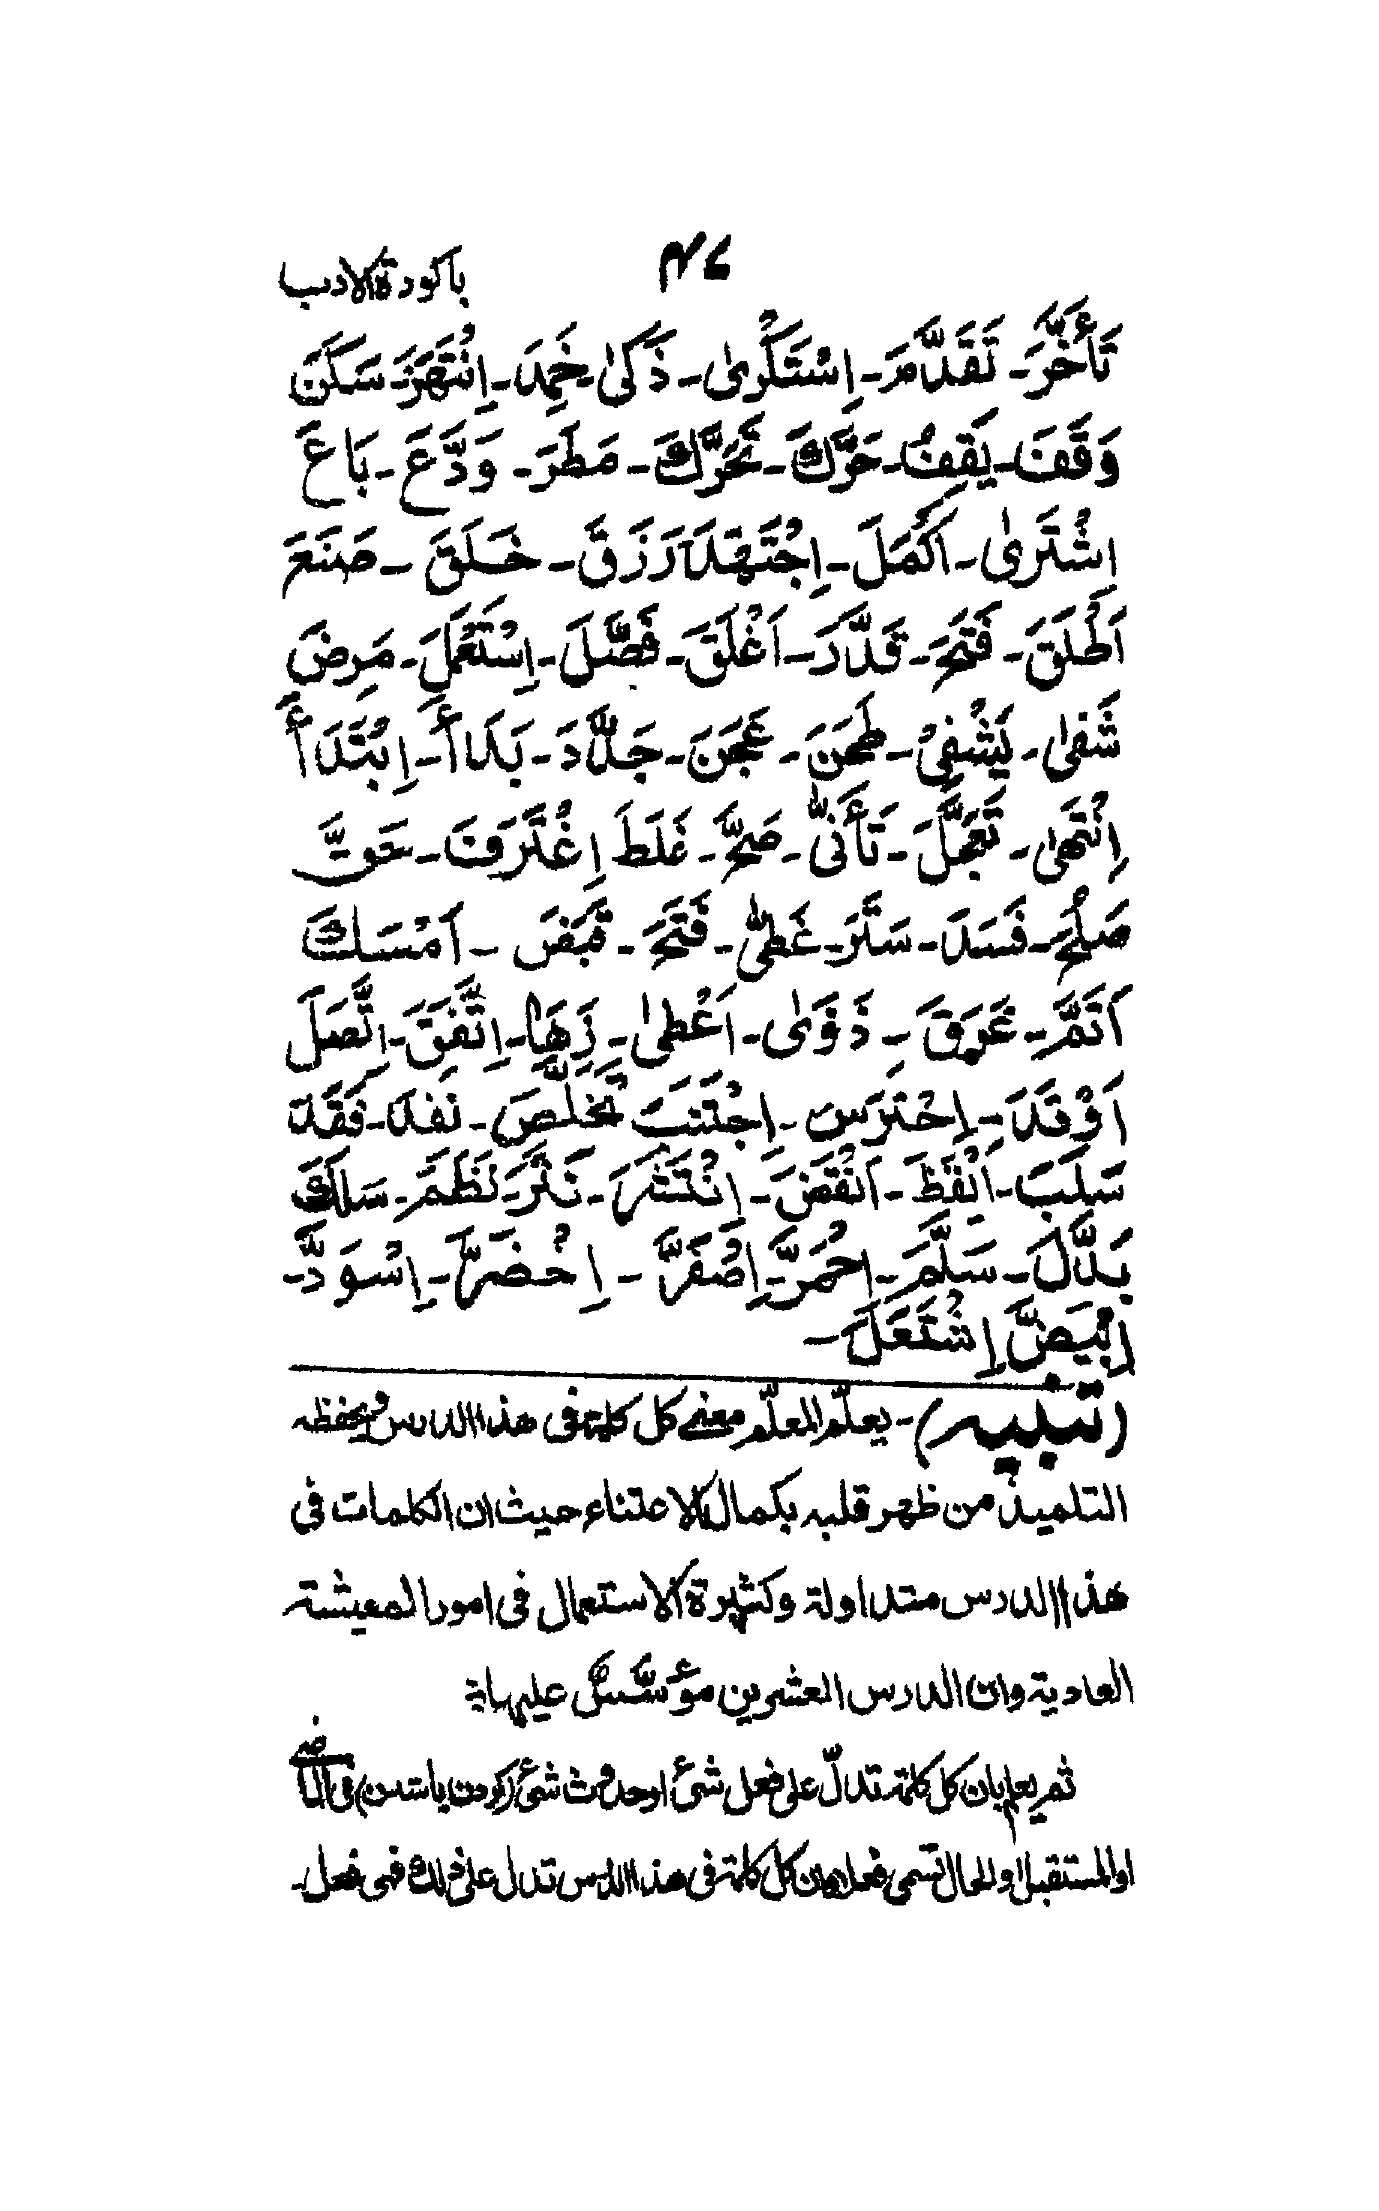 باكورة الادب ۴۷
تَأَخَّرَ - تَقَدَّمَ - اِسْتَكْرىٰ - ذَكىٰ - خَمِدَ - اِنْتَهَزَ - سَكَنَ
وَقَفَ - يَقِفُ - حَرَّكَ - تَحَرَّكَ - مَطَرَ - وَدَّعَ - بَاعَ
اِشْتَرىٰ - اَكْمَلَ - اِجْتَهَدَ رَزَقَ - خَلَقَ - صَنَعَ
اَطْلَقَ - فَتَحَ - قَدَّرَ - اَغْلَقَ - فَضَّلَ - اِسْتَعْمَلَ - مَرِضَ
شَفىٰ - يَشْفِيْ - طَحَنَ - عَجَنَ - جَلَّدَ - بَدَأَ - اِبْتَدَأَ
اِنْتَهىٰ - تَعَجَّلَ - تَأَنّٰى - صَحَّ - غَلَطَ اِغْتَرَفَ -
صَلُحَ - فَسَدَ - سَتَرَ - غَطّٰى - فَتَحَ - قَبَضَ - اَمْسَكَ
اَتَمَّ - غَرِقَ - ذَوٰى - اَعْطىٰ - زَهَا - اِتَّفَقَ - اِتَّصَلَ
اَوْقَدَ - اِحْتَرَسَ - اِجْتَنَبَ تَخَلَّصَ - نَفِدَ - فَقَدَ
سَلَبَ - اَيْقَظَ - اَنْقَضَ - اِنْتَثَرَ - نَثَرَ - نَظَمَ - سَلَكَ
بَدَّلَ - سَلَّمَ - اِحْمَرَّ - اِصْفَرَّ - اِخْضَرَّ - اِسْوَدَّ -
اِبْيَضَّ اِشْتَعَلَ -
(تنبيه) - يعلّم المعلّم معنى كل كلمة فى هذا الدرس ويحفظه
التلميذ من ظهر قلبه بكمال الاعتناء حيث ان الكلمات فى
هذا الدرس متداولة وكثيرة الاستعمال فى امور المعيشة
العادية وان الدرس العشرين مؤسَّسٌ عليها
ثم يعلم بان كل كلمة تدلّ على فعل شئ اوحدوث شئ (كردن ياشدن) فى الماضى
اوالمستقبل اوالحال تسمى فعلا وان كل كلمة فى هذا الدرس تدل على ذلك فهى فعل -